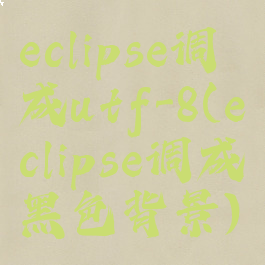 eclipse调
成utf-8(e
clipse调成
黑色背景)